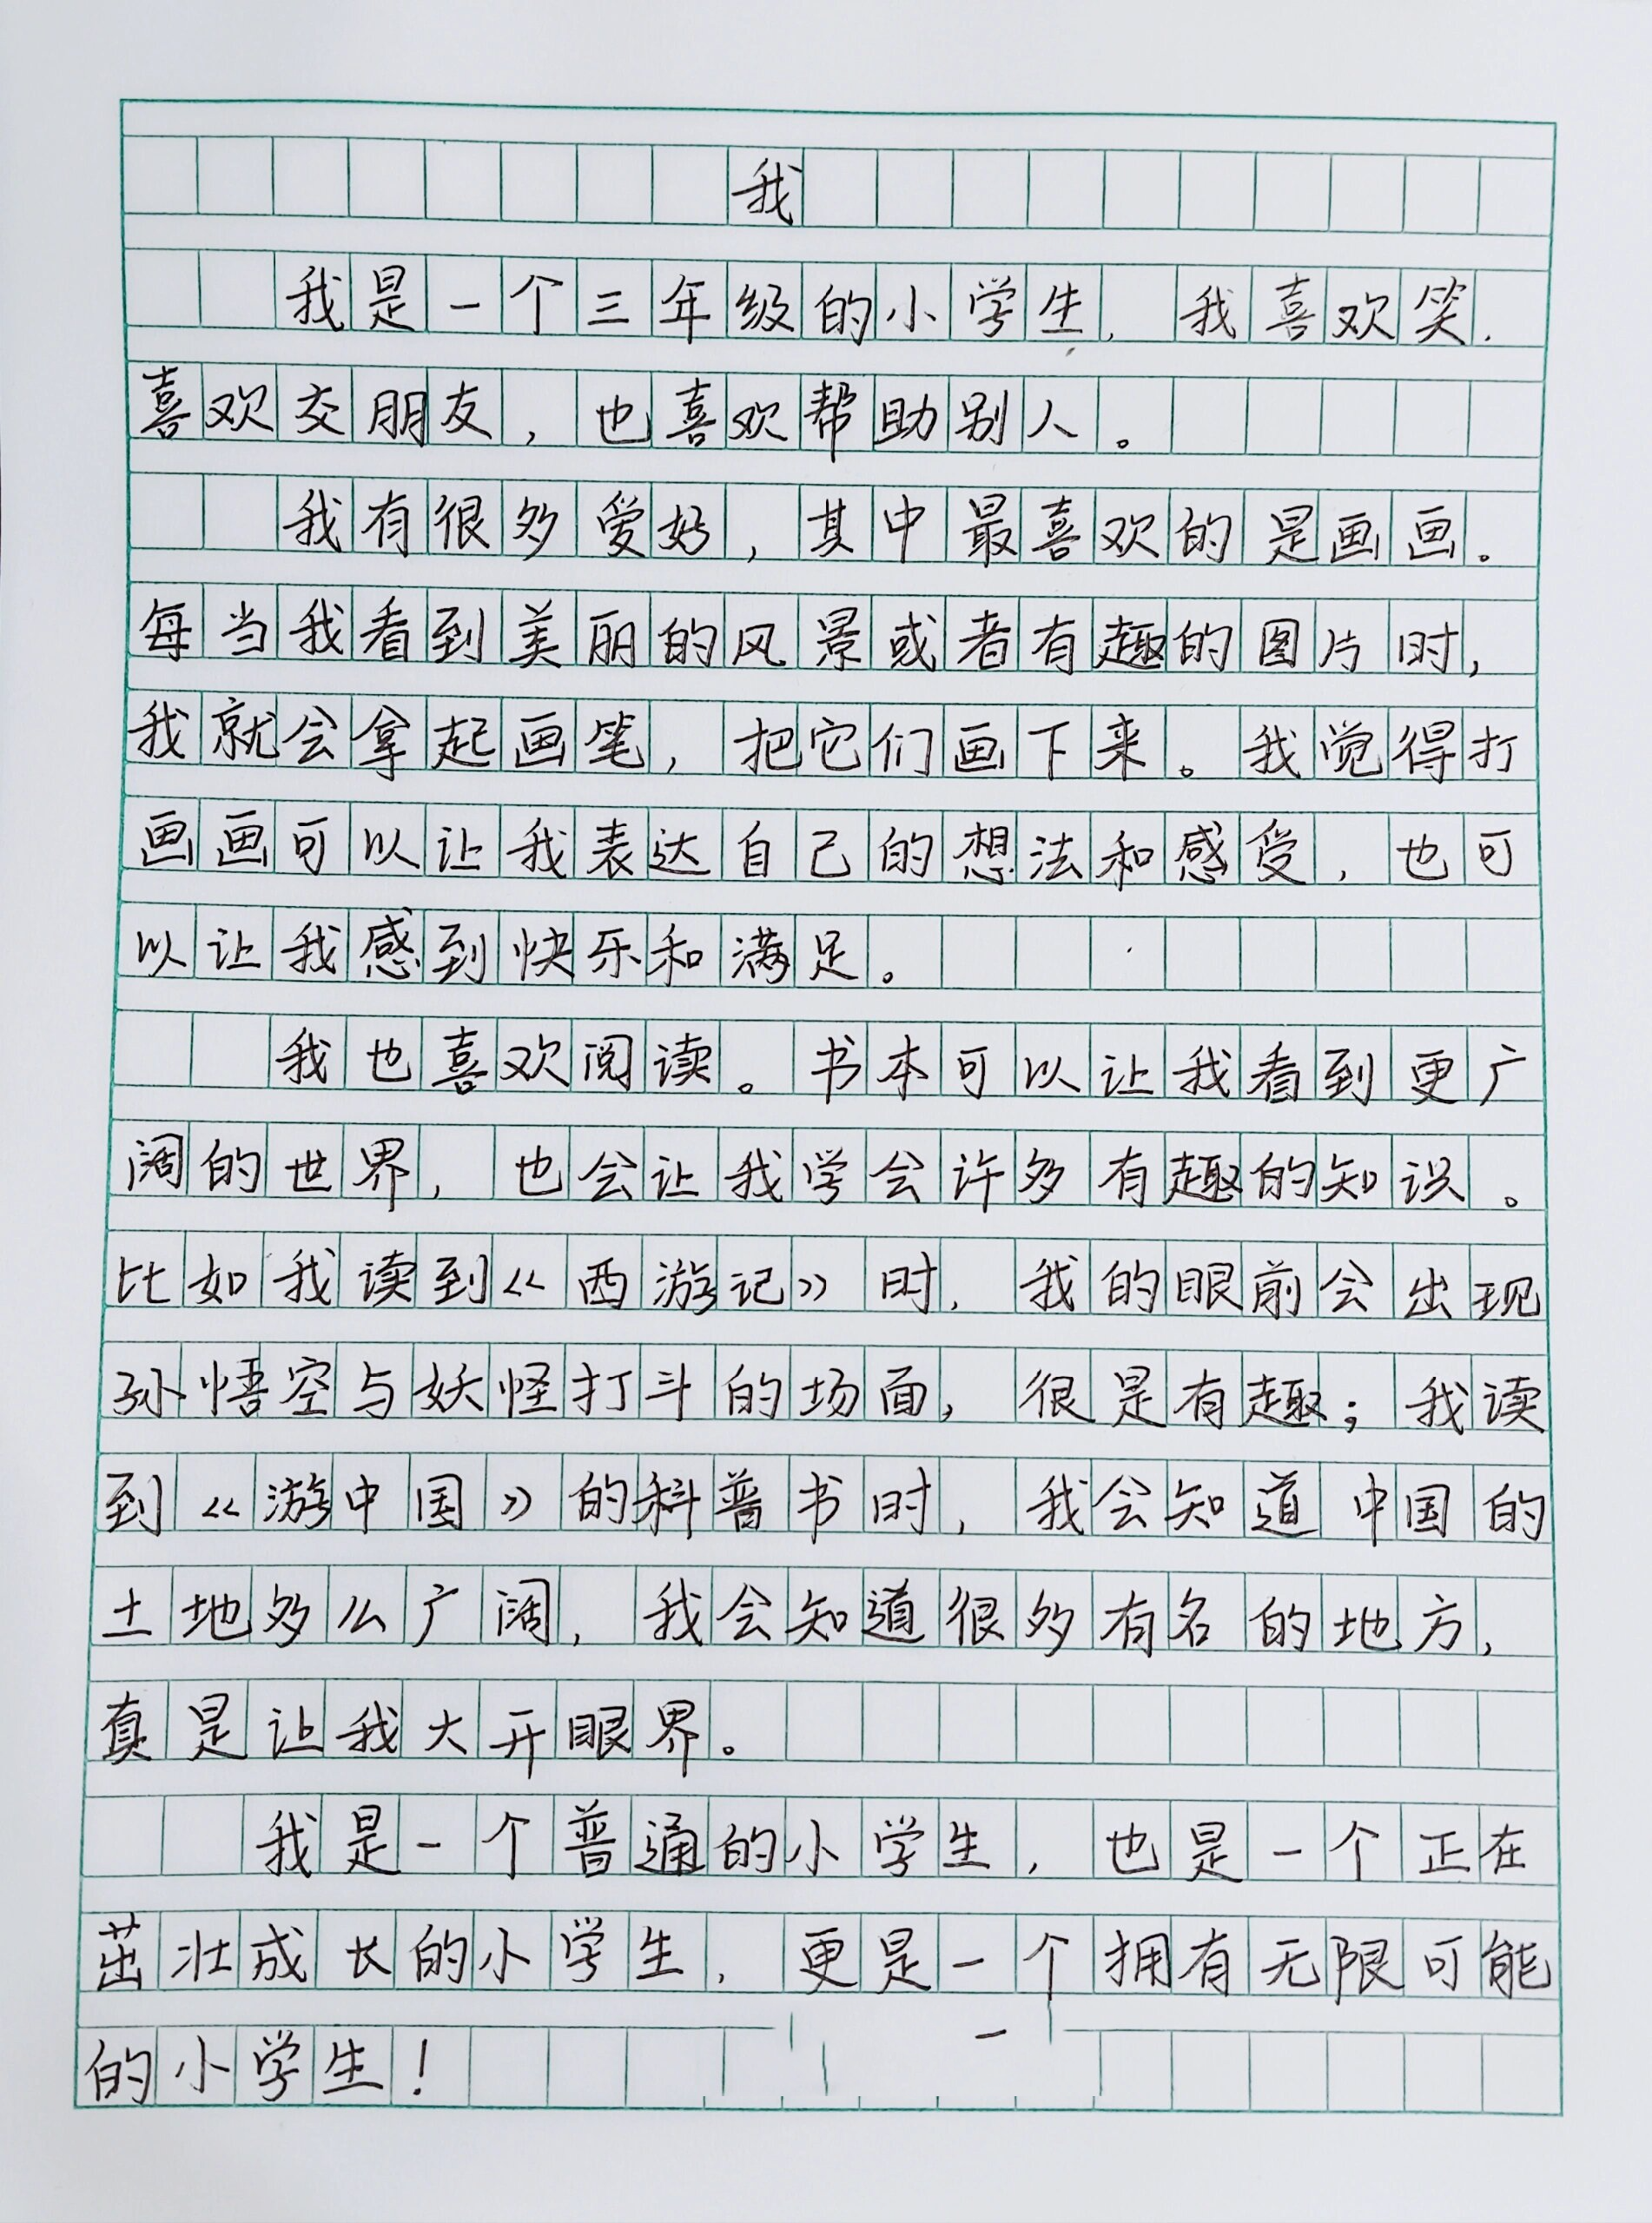 我
我是一个三年级的小学生，我喜欢笑，
喜欢交朋友，也喜欢帮助别人。
我有很多爱好，其中最喜欢的是画画。
每当我看到美丽的风景或者有趣的图片时，
我就会拿起画笔，把它们画下来。我觉得打
画画可以让我表达自己的想法和感受，也可
以让我感到快乐和满足。
我也喜欢阅读。书本可以让我看到更广
阔的世界，也会让我学会许多有趣的知识。
比如我读到《西游记》时，我的眼前会出现
孙悟空与妖怪打斗的场面，很是有趣；我读
到《游中国》的科普书时，我会知道中国的
土地多么广阔，我会知道很多有名的地方，
真是让我大开眼界。
我是一个普通的小学生，也是一个正在
茁壮成长的小学生，更是一个拥有无限可能
的小学生！